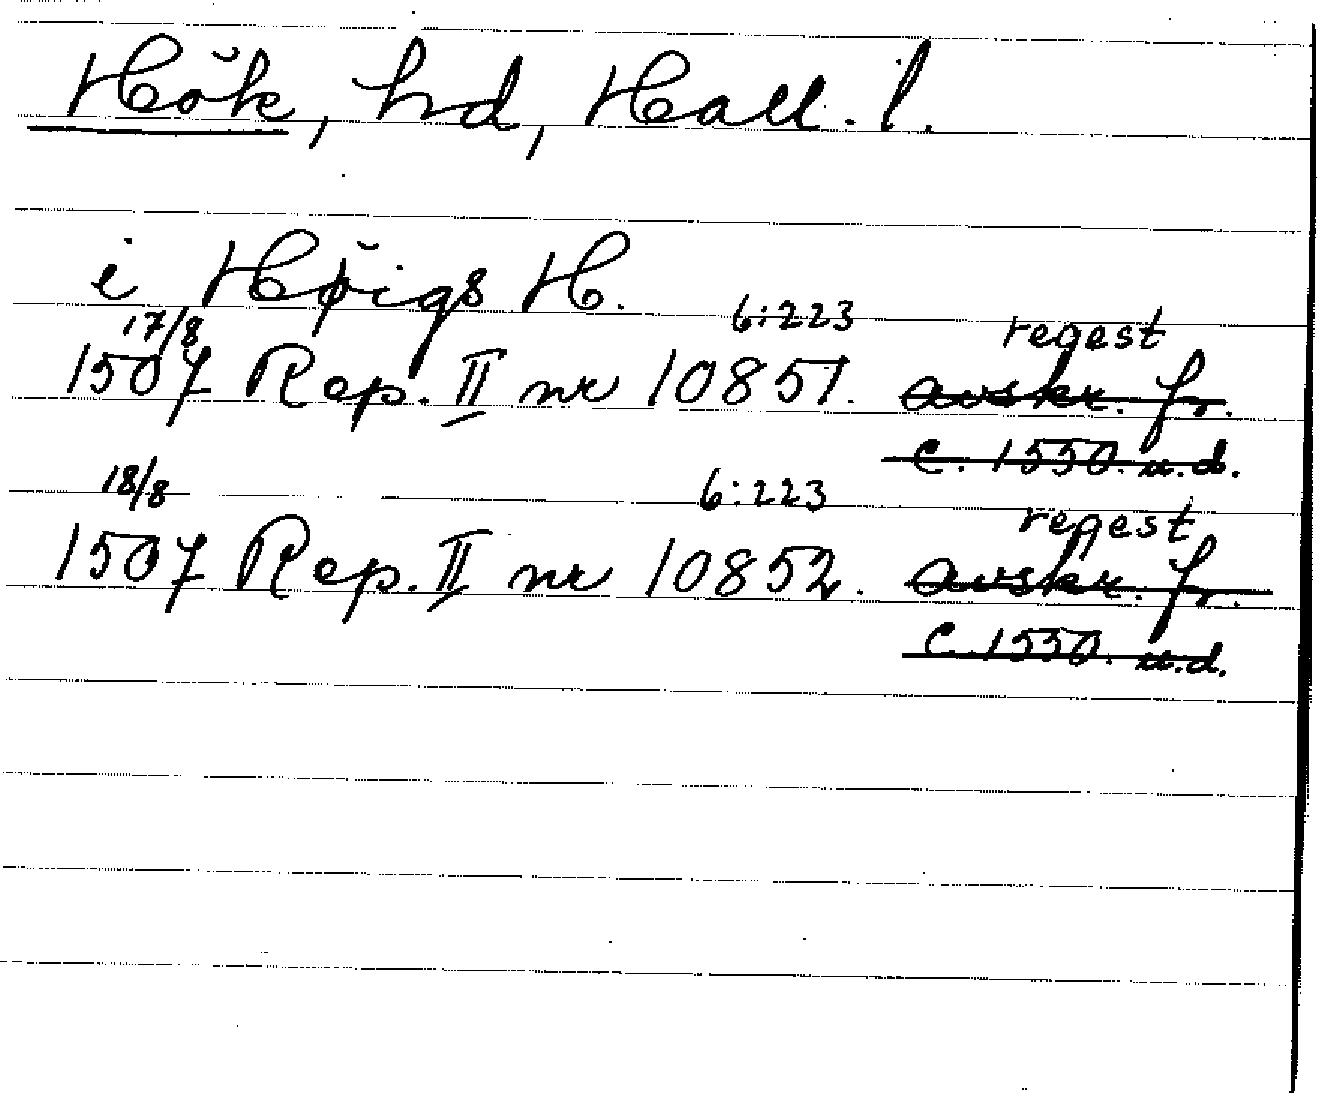 Hök, hd, Hall. l.
i Høigs H.
17/8 6:223 regest
1507 Rep. II nr 10851. avskr. fr.
c. 1550. u.d.
18/8 6:223 regest
1507 Rep. II nr 10852. avskr. fr.
c. 1550. u.d.